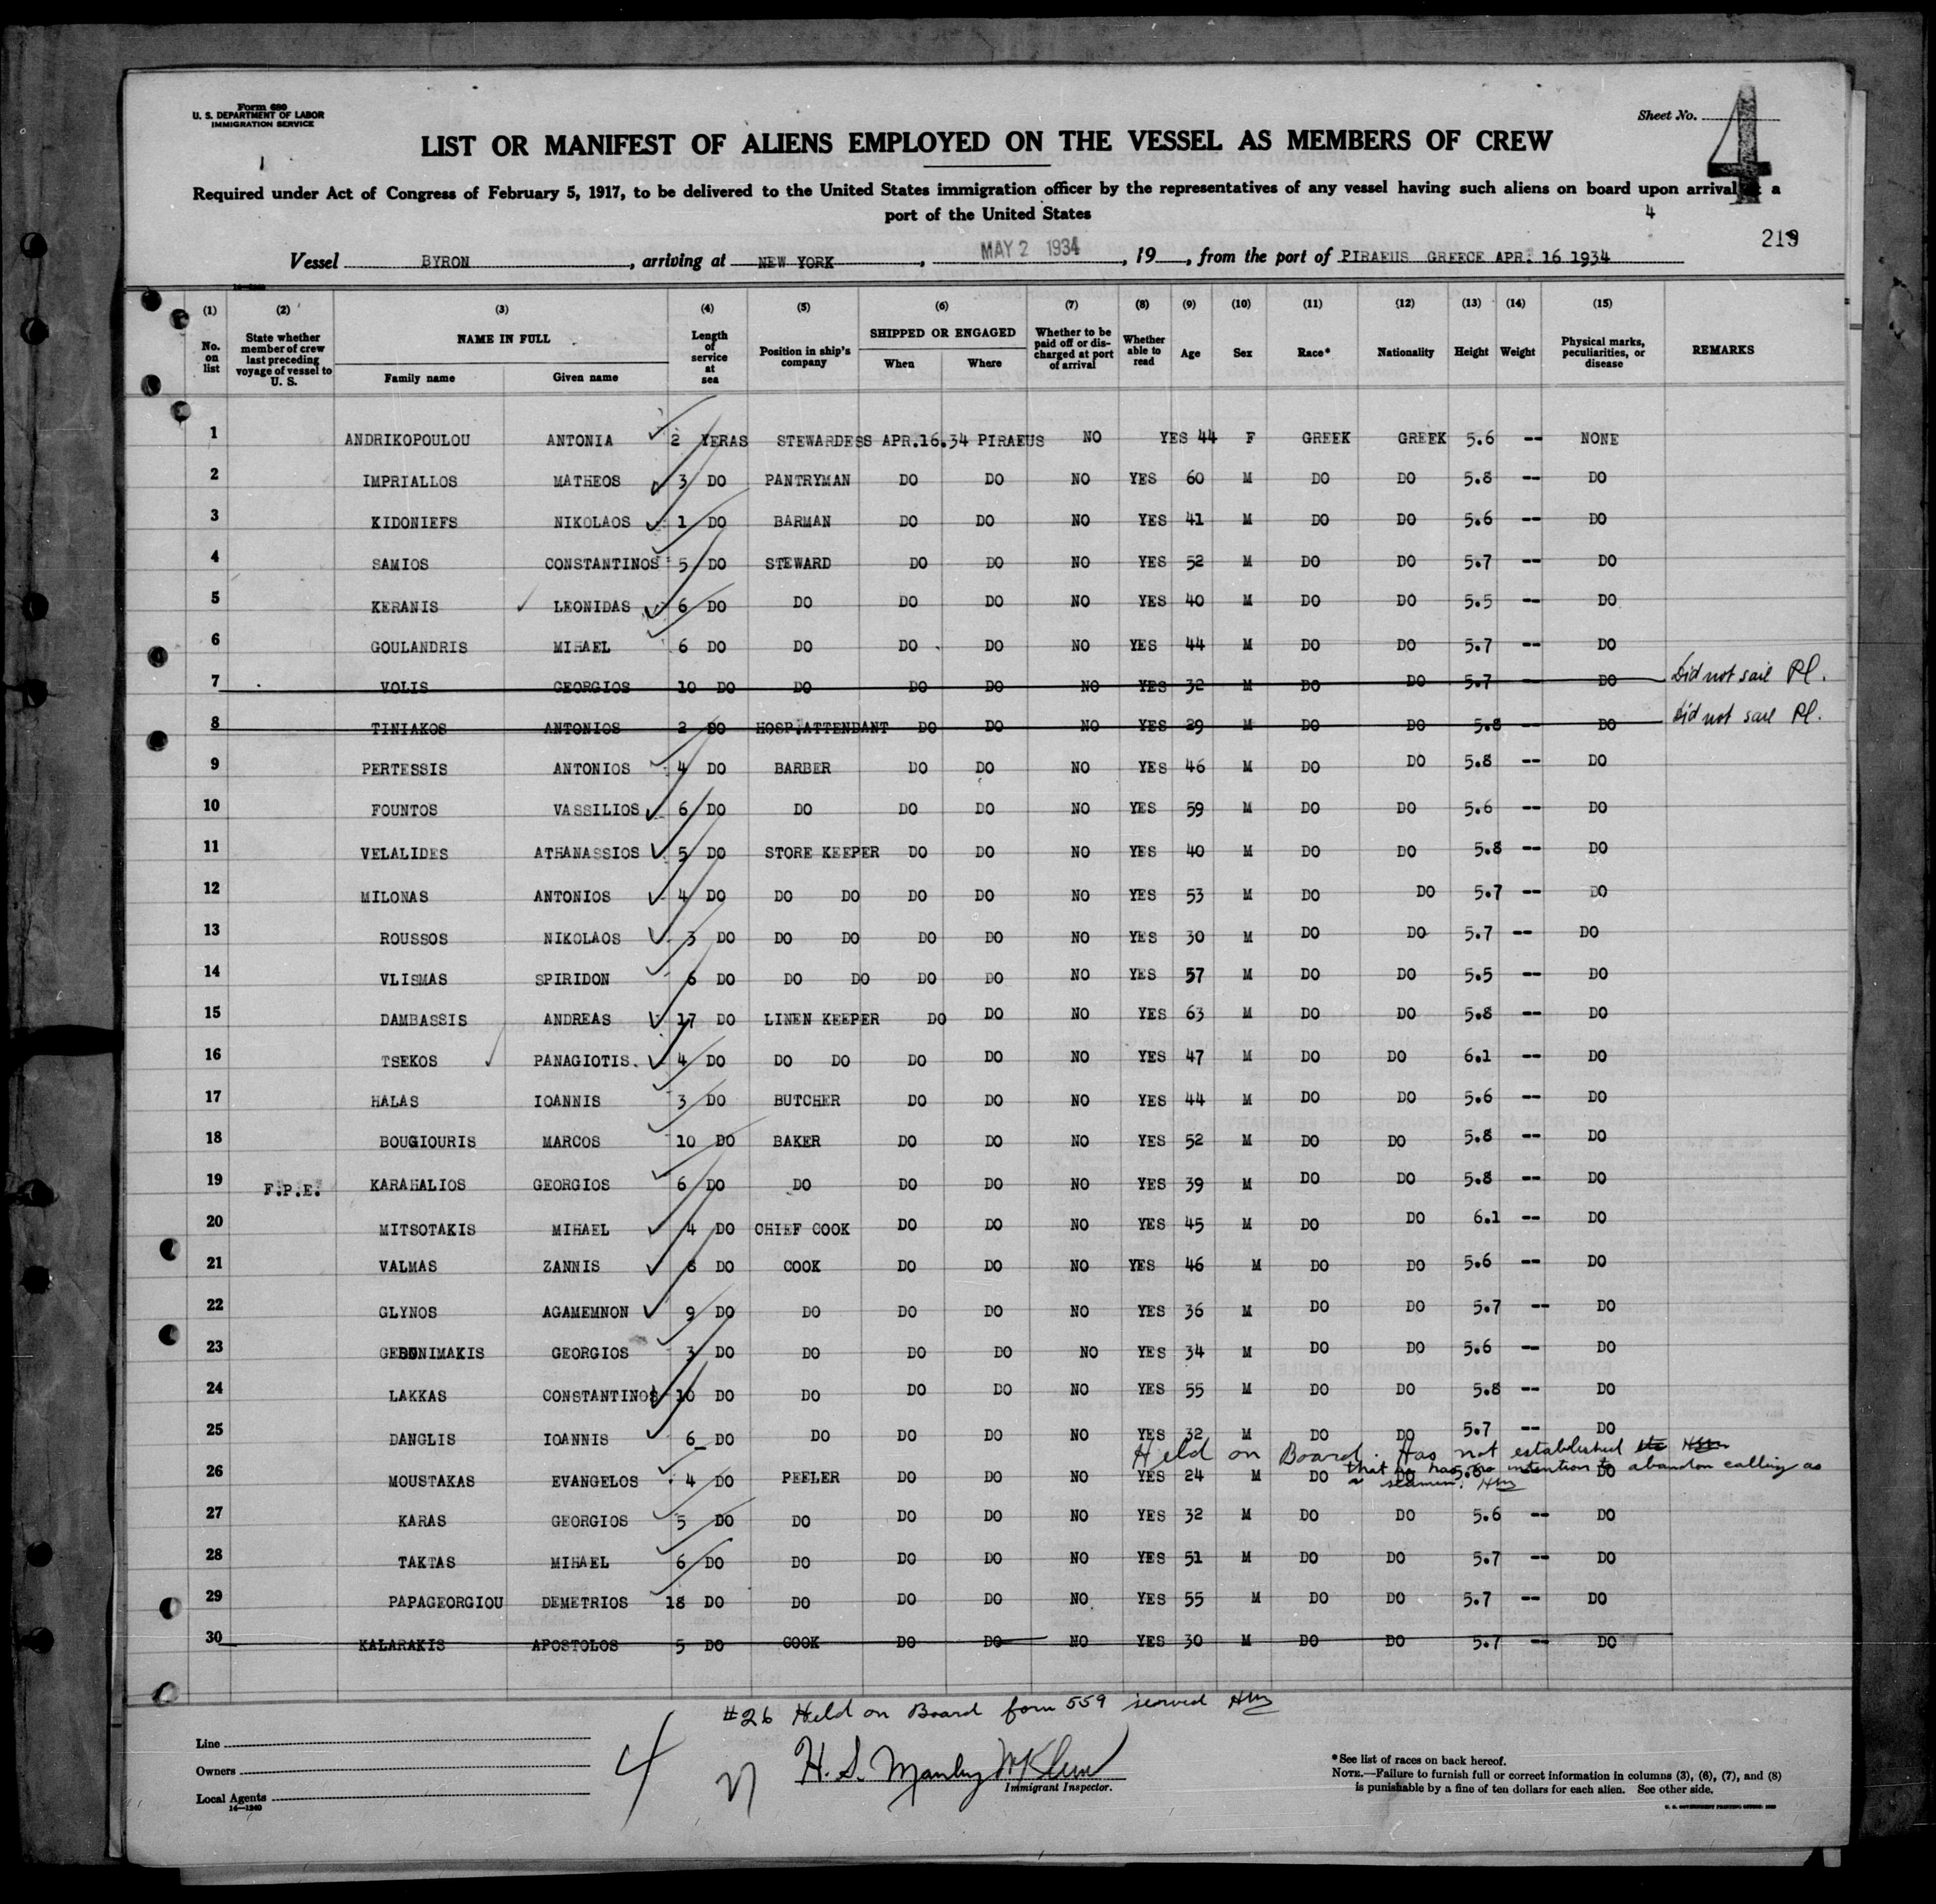 Form 680
U. S. DEPARTMENT OF LABOR
IMMIGRATION SERVICE
Sheet No. 4
LIST OR MANIFEST OF ALIENS EMPLOYED ON THE VESSEL AS MEMBERS OF CREW
Required under Act of Congress of February 5, 1917, to be delivered to the United States immigration officer by the representatives of any vessel having such aliens on board upon arrival a
port of the United States
4
219
Vessel BYRON, arriving at NEW YORK, MAY 2 1934, 19, from the port of PIRAEUS GREECE APR. 16 1934
(1) (2) (3) (4) (5) (6) (7) (8) (9) (10) (11) (12) (13) (14) (15)
No. on list State whether member of crew last preceding voyage of vessel to U. S. NAME IN FULL Family name Given name Length of service at sea Position in ship's company SHIPPED OR ENGAGED When Where Whether to be paid off or discharged at port of arrival Whether able to read Age Sex Race* Nationality Height Weight Physical marks, peculiarities, or disease REMARKS
1 ANDRIKOPOULOU ANTONIA 2 YERAS STEWARDESS APR.16.34 PIRAEUS NO YES 44 F GREEK GREEK 5.6 -- NONE
2 IMPRIALLOS MATHEOS 3 DO PANTRYMAN DO DO NO YES 60 M DO DO 5.8 -- DO
3 KIDONIEFS NIKOLAOS 1 DO BARMAN DO DO NO YES 41 M DO DO 5.6 -- DO
4 SAMIOS CONSTANTINOS 5 DO STEWARD DO DO NO YES 52 M DO DO 5.7 -- DO
5 KERANIS LEONIDAS 6 DO DO DO DO NO YES 40 M DO DO 5.5 -- DO
6 GOULANDRIS MIHAEL 6 DO DO DO DO NO YES 44 M DO DO 5.7 -- DO
7 VOLIS GEORGIOS 10 DO DO DO DO NO YES 32 M DO DO 5.7 -- DO Did not sail Pl.
8 TINIAKOS ANTONIOS 2 DO HOSP.ATTENDANT DO DO NO YES 29 M DO DO 5.8 -- DO Did not sail Pl.
9 PERTESSIS ANTONIOS 4 DO BARBER DO DO NO YES 46 M DO DO 5.8 -- DO
10 FOUNTOS VASSILIOS 6 DO DO DO DO NO YES 59 M DO DO 5.6 -- DO
11 VELALIDES ATHANASSIOS 5 DO STORE KEEPER DO DO NO YES 40 M DO DO 5.8 -- DO
12 MILONAS ANTONIOS 4 DO DO DO DO DO NO YES 53 M DO DO 5.7 -- DO
13 ROUSSOS NIKOLAOS 3 DO DO DO DO DO NO YES 30 M DO DO 5.7 -- DO
14 VLISMAS SPIRIDON 6 DO DO DO DO DO NO YES 57 M DO DO 5.5 -- DO
15 DAMBASSIS ANDREAS 17 DO LINEN KEEPER DO DO NO YES 63 M DO DO 5.8 -- DO
16 TSEKOS PANAGIOTIS. 4 DO DO DO DO DO NO YES 47 M DO DO 6.1 -- DO
17 HALAS IOANNIS 3 DO BUTCHER DO DO NO YES 44 M DO DO 5.6 -- DO
18 BOUGIOURIS MARCOS 10 DO BAKER DO DO NO YES 52 M DO DO 5.8 -- DO
19 F.P.E. KARAHALIOS GEORGIOS 6 DO DO DO DO NO YES 39 M DO DO 5.8 -- DO
20 MITSOTAKIS MIHAEL 4 DO CHIEF COOK DO DO NO YES 45 M DO DO 6.1 -- DO
21 VALMAS ZANNIS 8 DO COOK DO DO NO YES 46 M DO DO 5.6 -- DO
22 GLYNOS AGAMEMNON 9 DO DO DO DO NO YES 36 M DO DO 5.7 -- DO
23 GEORGIOS 3 DO DO DO DO NO YES 34 M DO DO 5.6 -- DO
24 LAKKAS CONSTANTINOS 10 DO DO DO DO NO YES 55 M DO DO 5.8 -- DO
25 DANGLIS IOANNIS 6 DO DO DO DO NO YES 32 M DO DO 5.7 -- DO
Held on Board. Has not established
that he has no intention to abandon calling as
26 MOUSTAKAS EVANGELOS 4 DO PEELER DO DO NO YES 24 M DO DO 5.6 DO
a seaman. Hm
27 KARAS GEORGIOS 5 DO DO DO DO NO YES 32 M DO DO 5.6 -- DO
28 TAKTAS MIHAEL 6 DO DO DO DO NO YES 51 M DO DO 5.7 -- DO
29 PAPAGEORGIOU DEMETRIOS 18 DO DO DO DO NO YES 55 M DO DO 5.7 -- DO
30 KALARAKIS APOSTOLOS 5 DO COOK DO DO NO YES 30 M DO DO 5.7 -- DO
#26 Held on Board form 559 served Hm
Line
Owners
Local Agents
14—1240
4
H. S. Manley
Immigrant Inspector.
*See list of races on back hereof.
NOTE.—Failure to furnish full or correct information in columns (3), (6), (7), and (8)
is punishable by a fine of ten dollars for each alien. See other side.